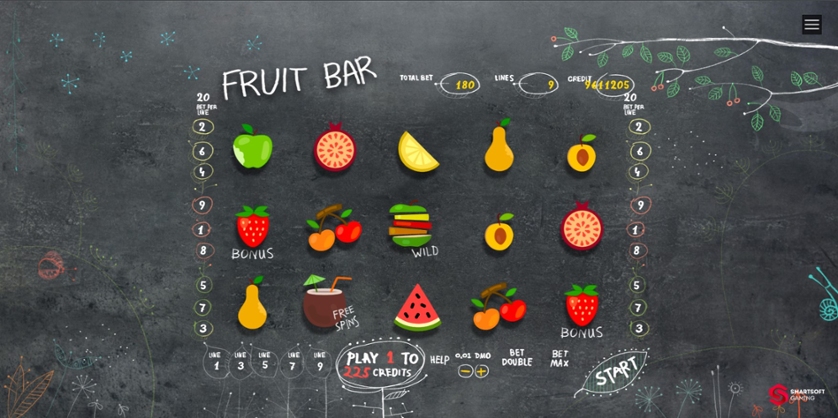 FRUIT BAR
TOTAL BET
180
LINES
9
CREDIT
9611205
20
BET PER
LINE
20
BET PER
LINE
2
2
6
6
4
4
9
9
1
1
8
8
BONUS
WILD
5
5
7
7
3
3
FREE
SPINS
BONUS
LINE
1
LINE
3
LINE
5
LINE
7
LINE
9
PLAY 1 TO
225 CREDITS
HELP
0,01 DMO
BET
DOUBLE
BET
MAX
START
SMARTSOFT
GAMING